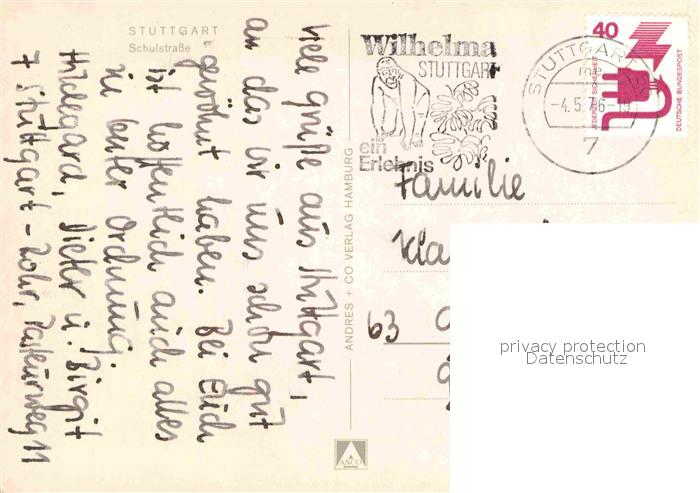 STUTTGART
Schulstraße
Viele Grüße aus Stuttgart,
an das wir uns schon gut
gewöhnt haben. Bei Euch
ist hoffentlich auch alles
in bester Ordnung.
Hildegard, Dieter u. Birgit
7 Stuttgart - Rohr,
ANDRES + CO VERLAG HAMBURG
ANCO
Wilhelma
STUTTGART
ein
Erlebnis
STUTTGART
-4.5.76-19
7
40
JEDERZEIT SICHERHEIT
DEUTSCHE BUNDESPOST
Familie
63
privacy protection
Datenschutz